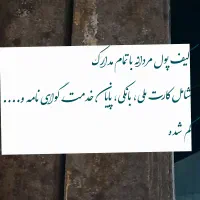 کیف پول مردانه با تمام مدارک
شامل کارت ملی، بانکی، پایان خدمت گواهی نامه و....
گم شده